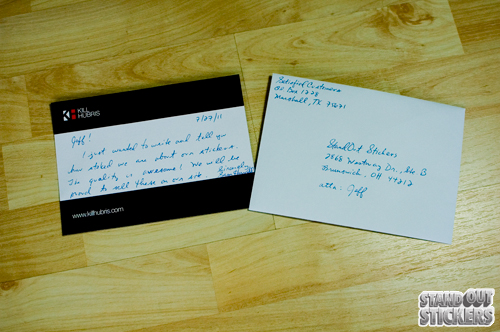 KILL
HUBRIS
7/27/11
Jeff!
I just wanted to write and tell you
how stoked we are about our stickers.
The quality is awesome! We will be
proud to sell these on our site.
Sincerely,
www.killhubris.com
Satisfied Customers
PO Box 1228
Marshall, TX 75671
StandOut Stickers
2868 Westway Dr., Ste B
Brunswick, OH 44212
attn: Jeff
STAND OUT
STICKERS